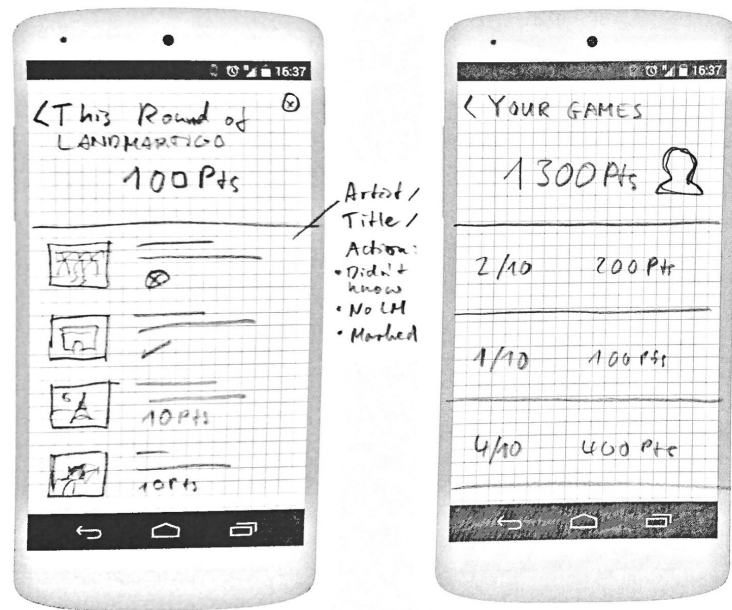 16:37
< This Round of
LANDMARTIGO
100 Pts
10 Pts
10 Pts
Artist /
Title /
Action:
• Didn't
know
• No LM
• Marked
16:37
< YOUR GAMES
1300 Pts
2/10 200 Pts
1/10 100 Pts
4/10 400 Pts